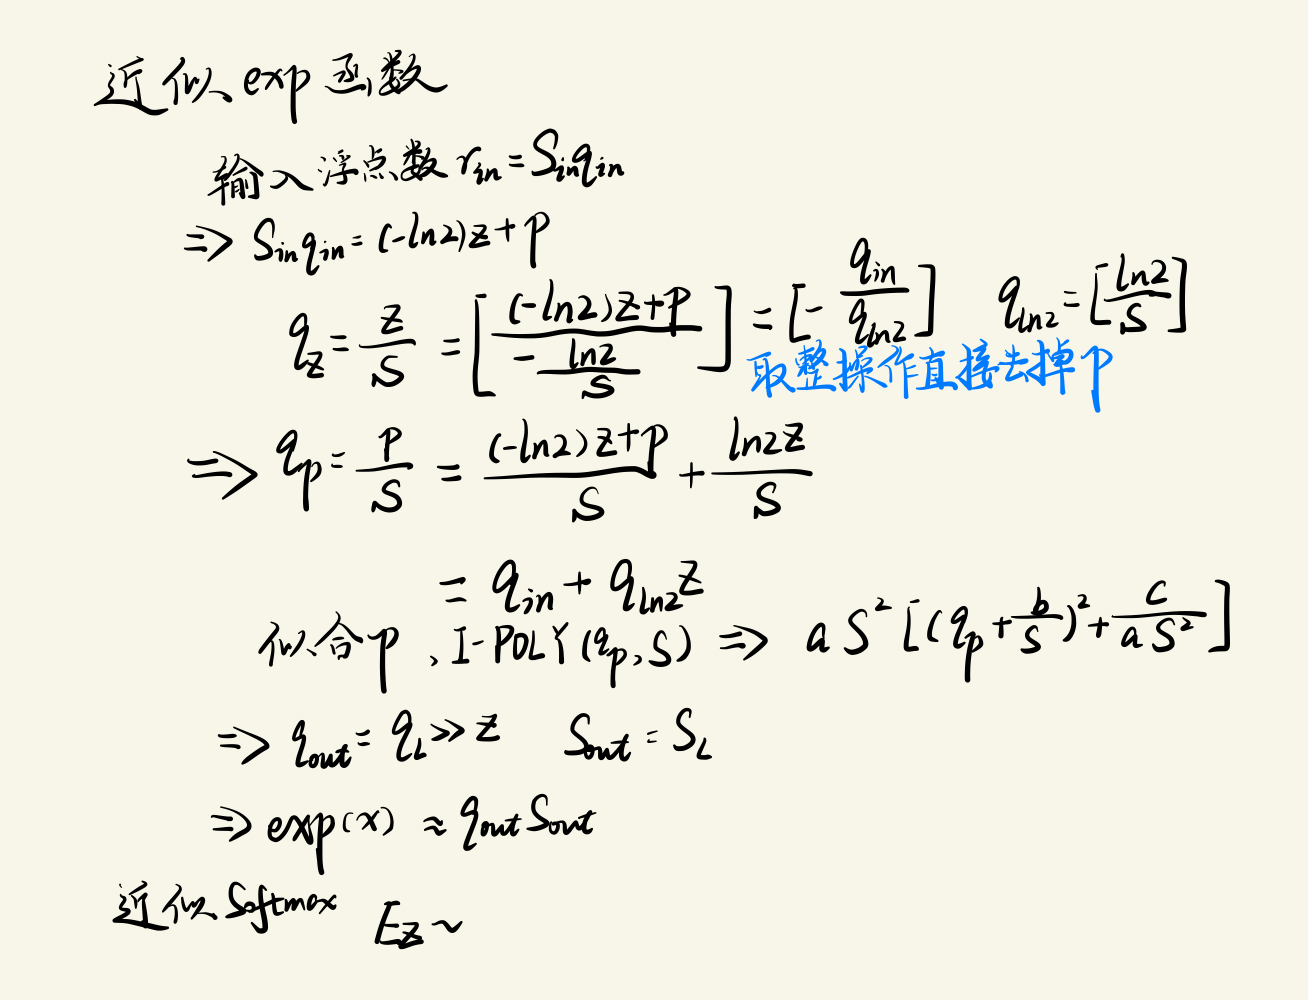 近似 exp 函数
输入浮点数 r_in = S_in q_in
⇒ S_in q_in = (-ln2)z + p
q_z = z/S = [((-ln2)z+p)/(-ln2/S)] = [-q_in/q_ln2] q_ln2 = [ln2/S]
取整操作直接去掉 p
⇒ q_p = p/S = ((-ln2)z+p)/S + ln2z/S
= q_in + q_ln2 z
似合 p、I-POLY(q_p, S) ⇒ a S² [(q_p + b/S)² + c/(aS²)]
⇒ q_out = q_L >> z S_out = S_L
⇒ exp(x) ≈ q_out S_out
近似 Softmax Ez~